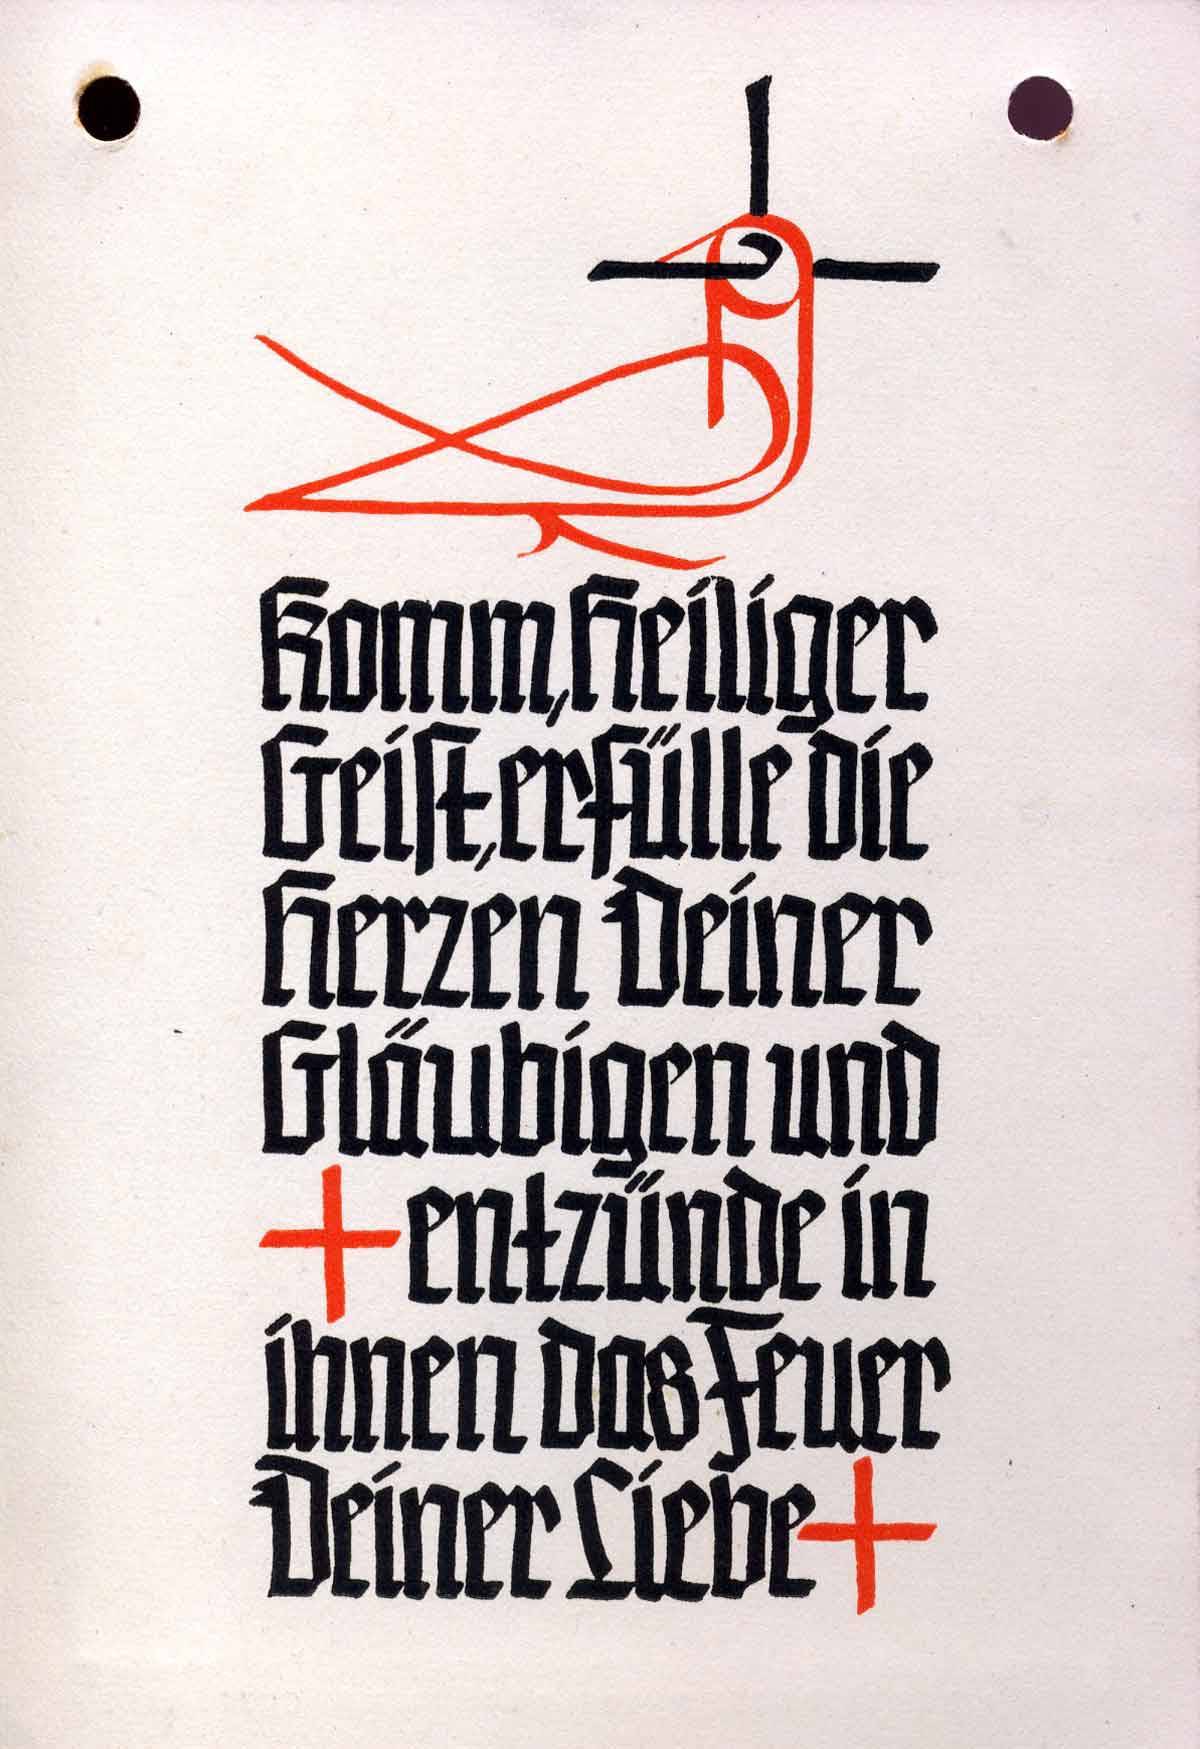 Komm, Heiliger
Geist, erfülle die
Herzen Deiner
Gläubigen und
+ entzünde in
ihnen das Feuer
Deiner Liebe +